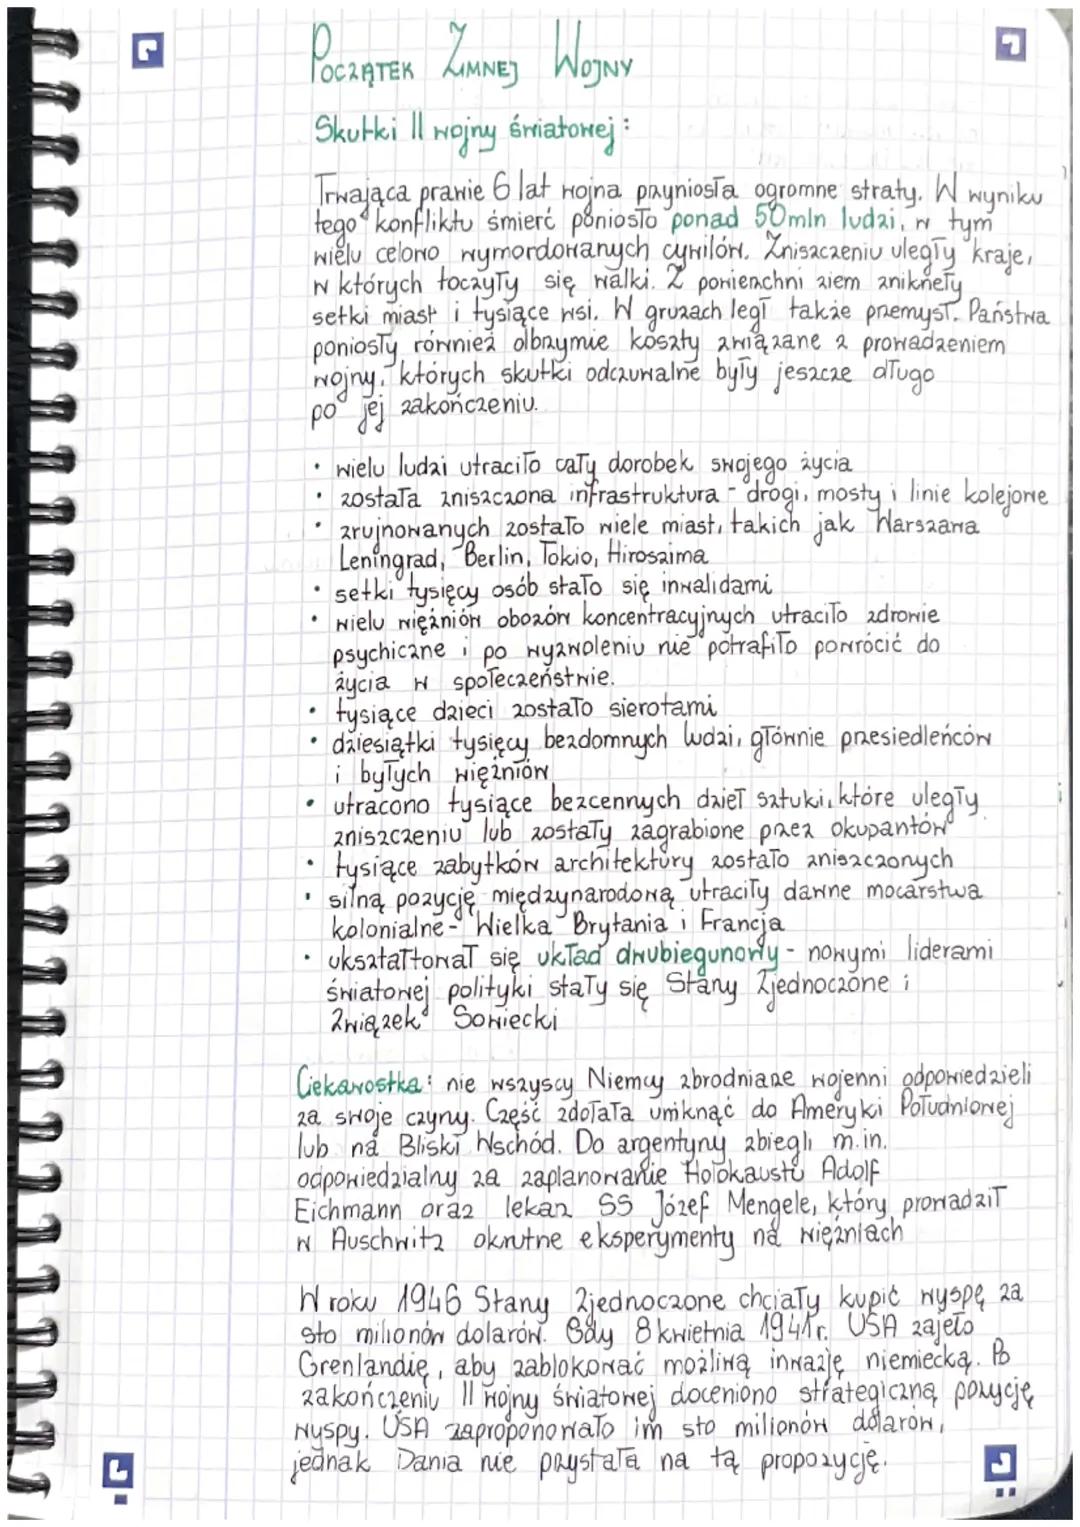 Początek Zimnej Wojny
Skutki II wojny światowej:
Trwająca prawie 6 lat wojna przyniosła ogromne straty. W wyniku
tego konfliktu śmierć poniosło ponad 50mln ludzi, w tym
wielu celowo wymordowanych cywilów. Zniszczeniu uległy kraje,
w których toczyły się walki. Z powierzchni ziem zniknęły
setki miast i tysiące wsi. W gruzach legł także przemysł. Państwa
poniosły również olbrzymie koszty związane z prowadzeniem
wojny, których skutki odczuwalne były jeszcze długo
po jej zakończeniu.
• wielu ludzi utraciło cały dorobek swojego życia
• została zniszczona infrastruktura - drogi, mosty i linie kolejowe
• zrujnowanych zostało wiele miast, takich jak Warszawa
Leningrad, Berlin, Tokio, Hiroszima
• setki tysięcy osób stało się inwalidami
• wielu więźniów obozów koncentracyjnych utraciło zdrowie
psychiczne i po wyzwoleniu nie potrafiło powrócić do
życia w społeczeństwie.
• tysiące dzieci zostało sierotami
• dziesiątki tysięcy bezdomnych ludzi, głównie przesiedleńców
i byłych więźniów
• utracono tysiące bezcennych dzieł sztuki, które uległy
zniszczeniu lub zostały zagrabione przez okupantów
• tysiące zabytków architektury zostało zniszczonych
• silną pozycję międzynarodową utraciły dawne mocarstwa
kolonialne - Wielka Brytania i Francja
• ukształtował się układ dwubiegunowy - nowymi liderami
światowej polityki stały się Stany Zjednoczone i
Związek Sowiecki
Ciekawostka: nie wszyscy Niemcy zbrodniarze wojenni odpowiedzieli
za swoje czyny. Część zdołała umiknąć do Ameryki Południowej
lub na Bliski Wschód. Do argentyny zbiegli m.in.
odpowiedzialny za zaplanowanie Holokaustu Adolf
Eichmann oraz lekarz SS Józef Mengele, który prowadził
w Auschwitz okrutne eksperymenty na więźniach
W roku 1946 Stany Zjednoczone chciały kupić wyspę za
sto milionów dolarów. Gdy 8 kwietnia 1941r. USA zajęło
Grenlandię, aby zablokować możliwą inwazję niemiecką. Po
zakończeniu II wojny światowej doceniono strategiczną pozycję
wyspy. USA zaproponowało im sto milionów dolarów,
jednak Dania nie przystała na tą propozycję.